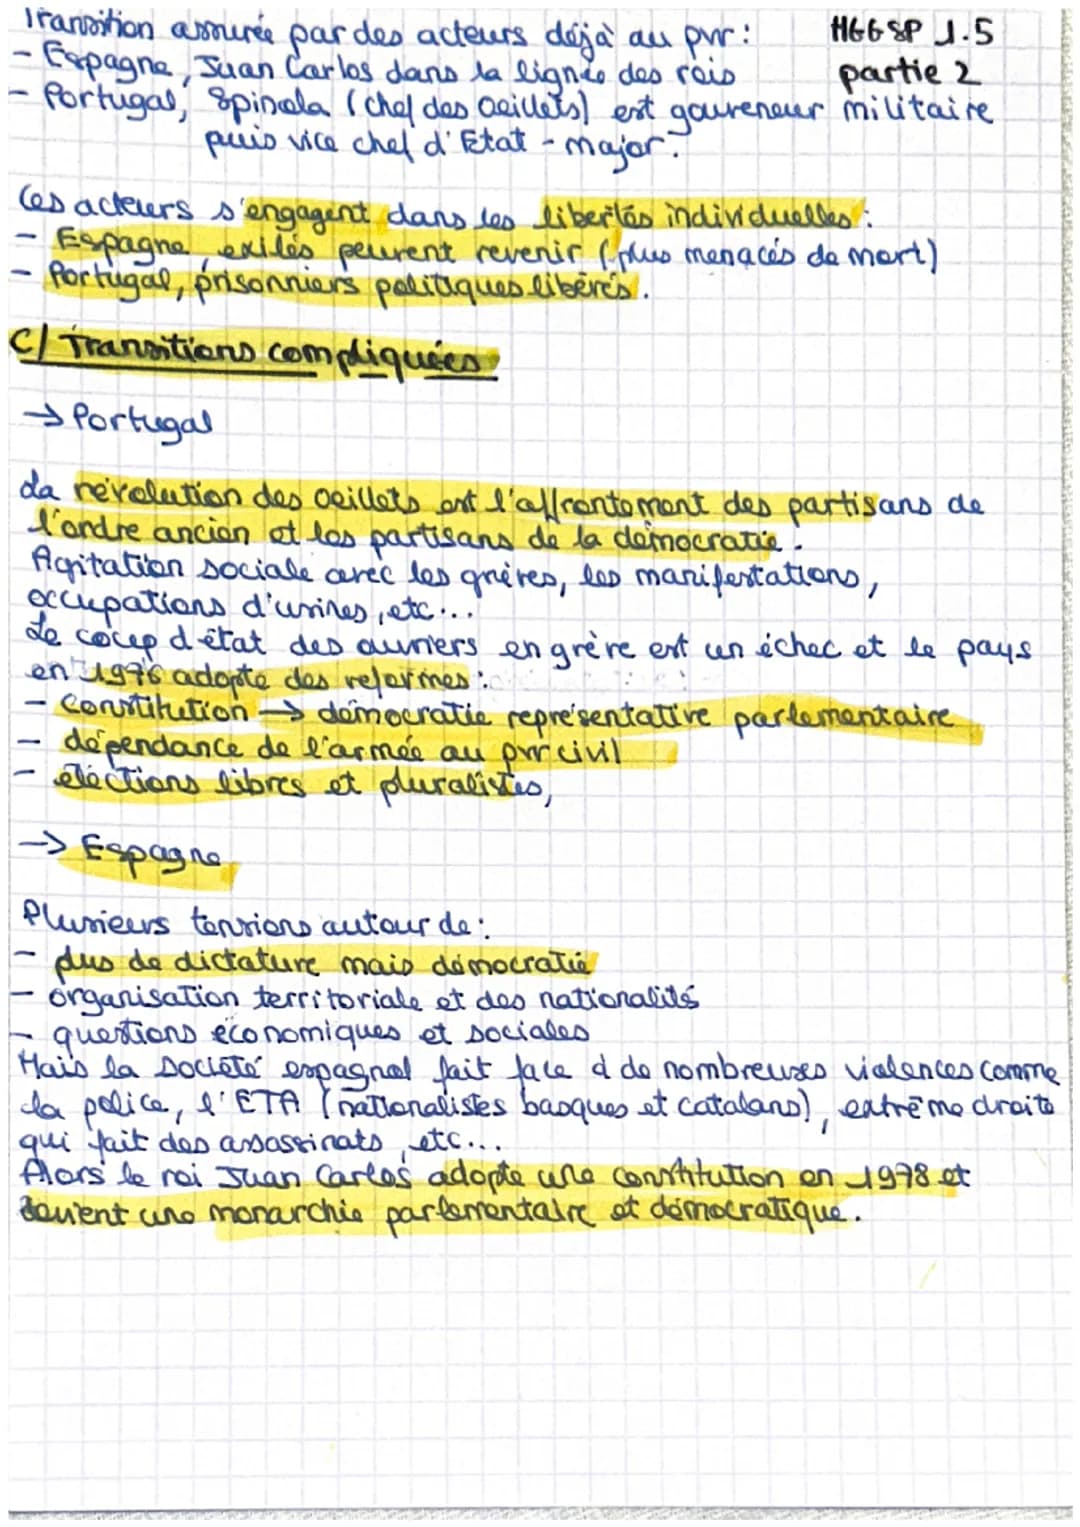 Transition assurée par des acteurs déjà au pvr :
HGGSP 1.5
partie 2
- Espagne, Juan Carlos dans la lignée des rois
- Portugal, Spinola (chef des œillets) est gouverneur militaire
puis vice chef d'Etat-major.
Ces acteurs s'engagent dans les libertés individuelles :
- Espagne, exilés peuvent revenir (plus menacés de mort)
- Portugal, prisonniers politiques libérés.
C/ Transitions compliquées
→ Portugal
La révolution des œillets est l'affrontement des partisans de
l'ordre ancien et les partisans de la démocratie.
Agitation sociale avec les grèves, les manifestations,
occupations d'usines, etc...
Le coup d'état des ouvriers en grève est un échec et le pays
en 1976 adopte des reformes :
- Constitution → démocratie représentative parlementaire
- dépendance de l'armée au pvr civil
- éléctions libres et pluralistes,
→ Espagne
Plusieurs tensions autour de :
- plus de dictature mais démocratie
- organisation territoriale et des nationalités
- questions économiques et sociales
Mais la société espagnol fait face d de nombreuses violences comme
la police, l'ETA (nationalistes basques et catalans), extrême droite
qui fait des assassinats, etc...
Alors le roi Juan Carlos adopte une constitution en 1978 et
devient une monarchie parlementaire et démocratique.